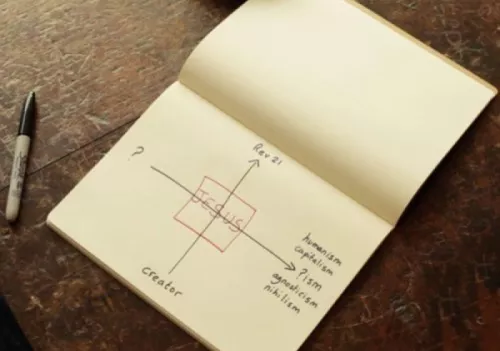 Rev 21
?
JESUS
humanism
capitalism
?ism
agnosticism
nihilism
creator